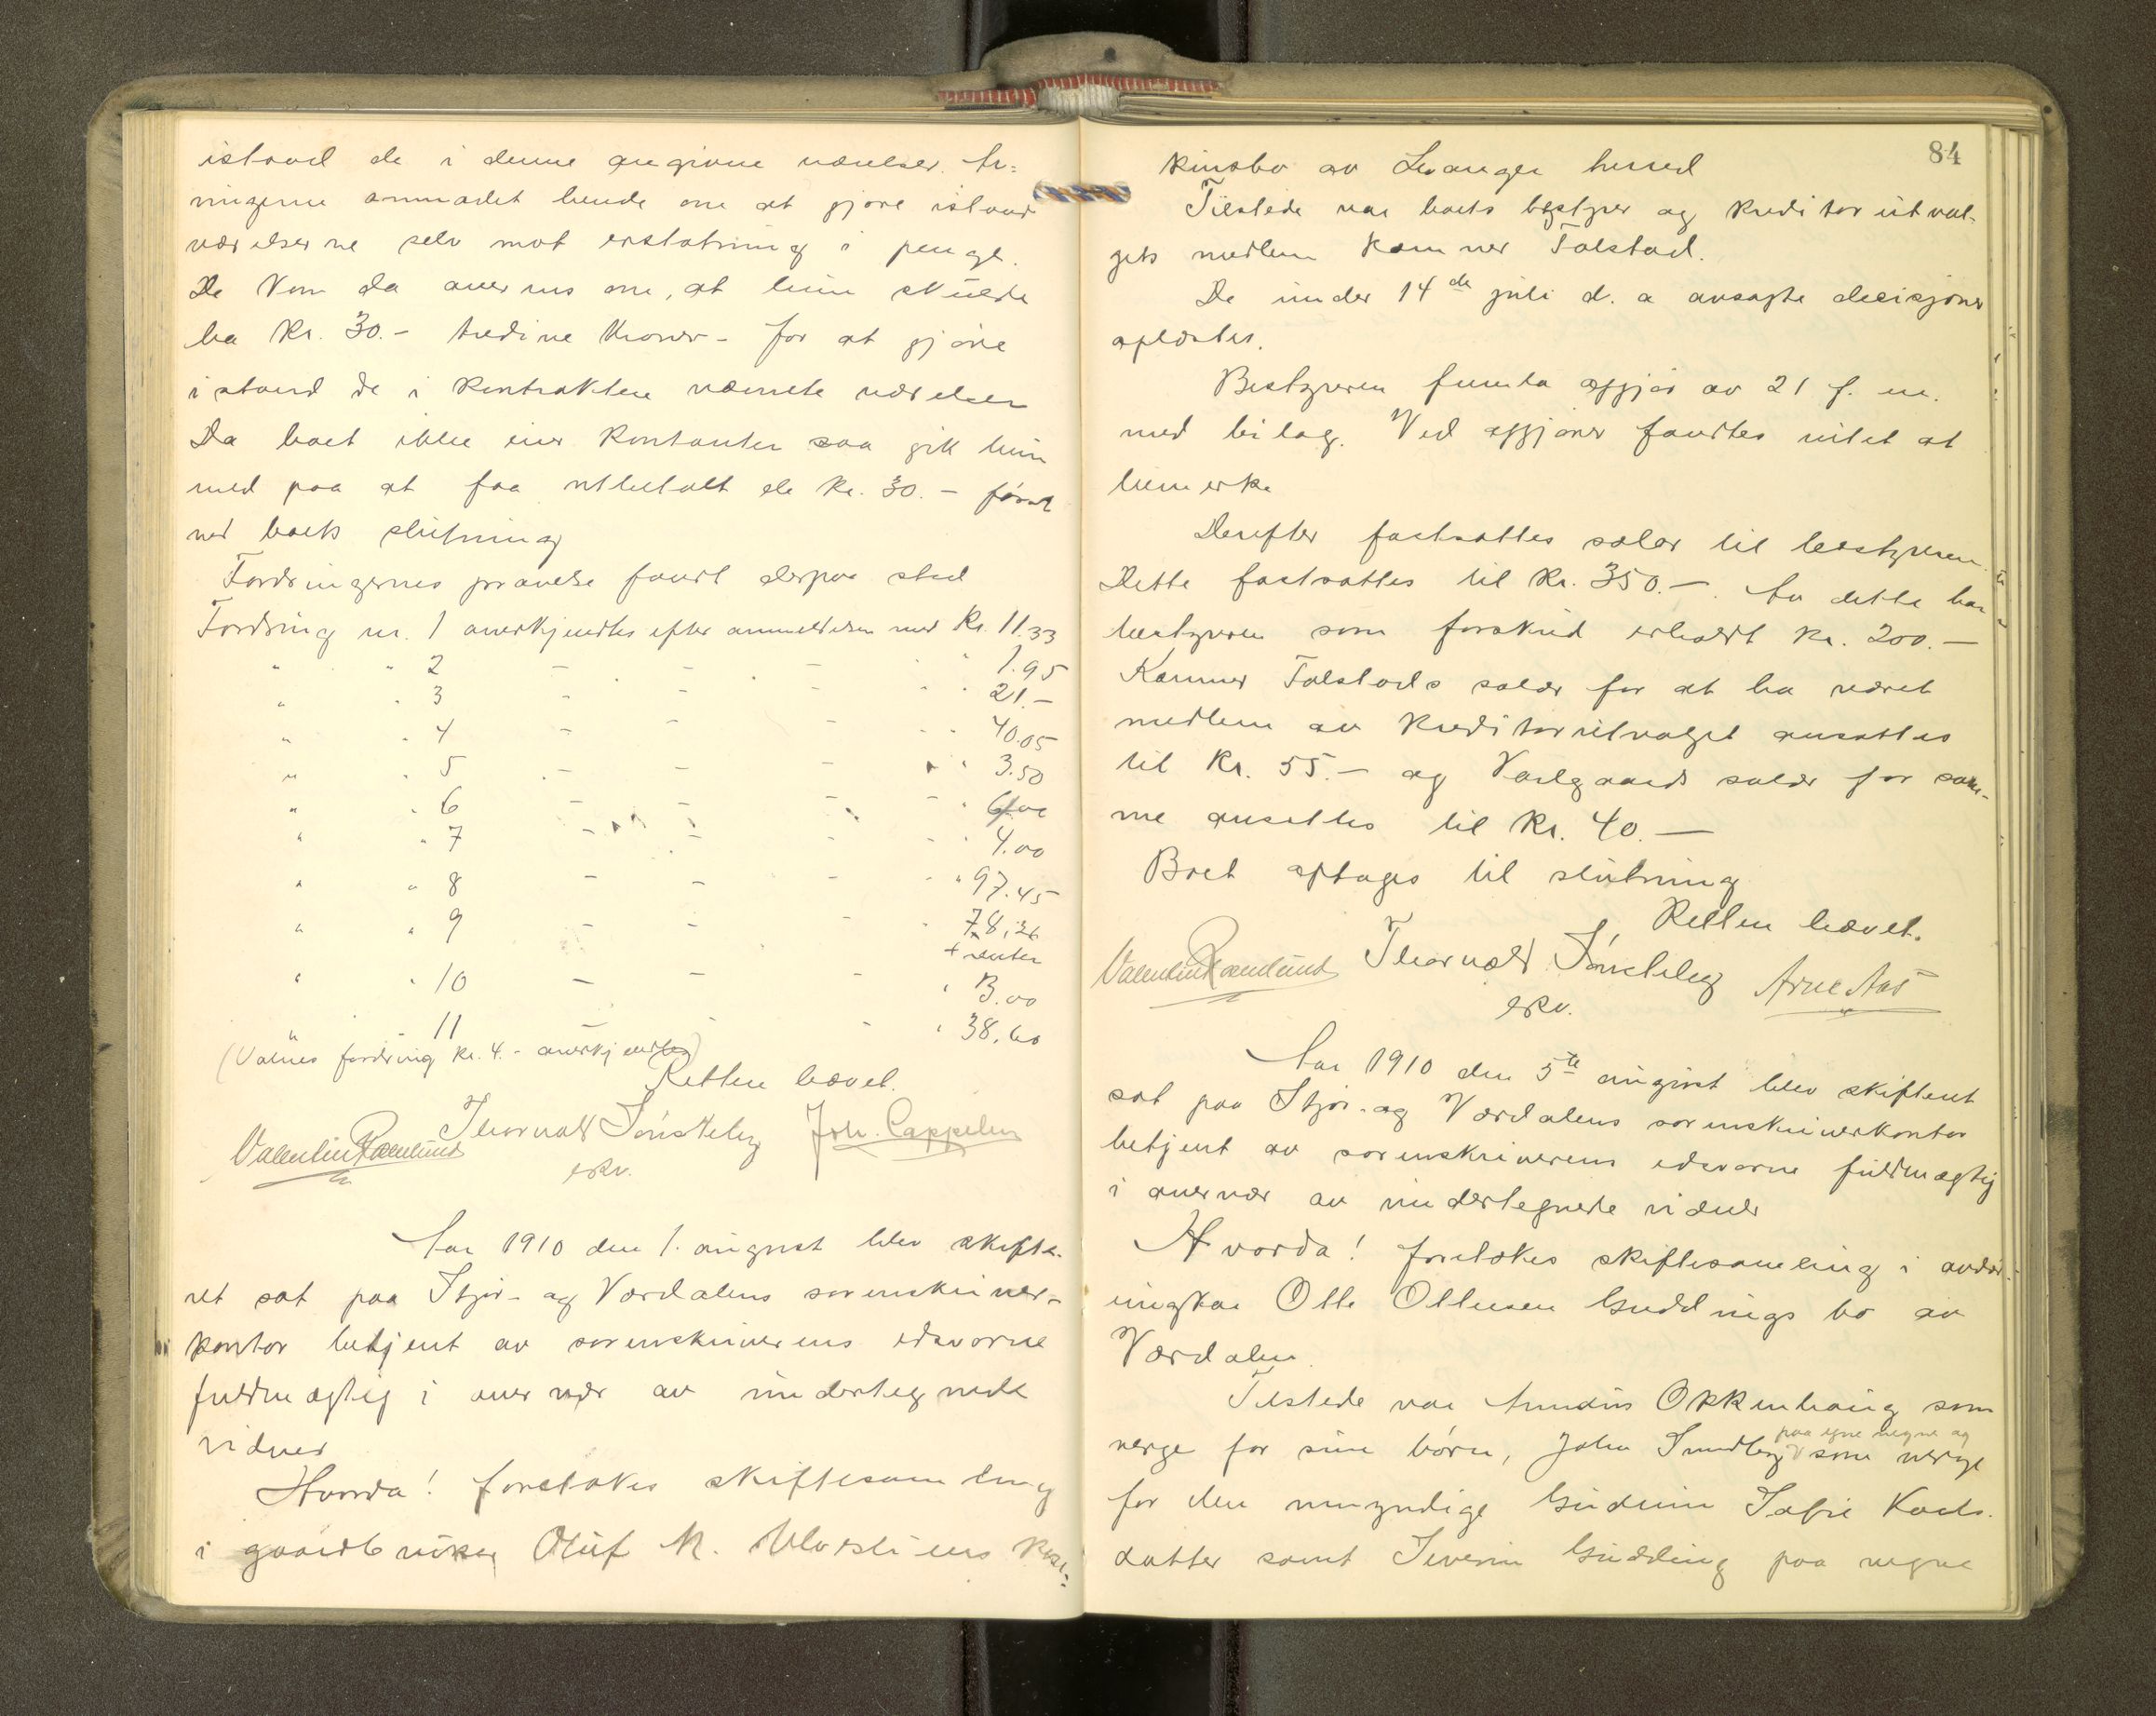 istand de i denne angivne værelser. Ar-
vingerne anmodet hende om at gjøre istand
værelserne selv mot erstatning i penge.
De kom da overens om, at hun skulde
ha Kr. 30.- tredive kroner - for at gjøre
i stand de i kontrakten nævnte værelser
Da boet ikke eier kontanter saa gik hun
med paa at faa utbetalt de Kr. 30.- først
ved boets slutning
Fordringernes prøvelse fandt derpaa sted
Fordring nr. 1 anerkjendtes efter anmeldelsen med Kr. 11.33
" " 2 - - - " " 1.95
" " 3 - - - " " 21.-
" " 4 - - - " " 40.05
" " 5 - - - " " 3.50
" " 6 - - - " "
" " 7 - - - " " 4.00
" " 8 - - - " 97.45
" " 9 - - - " 78,26
+ renter
" " 10 - - - " 3.00
" 11 - - - " 38,60
( fordring kr. 4.- anerkjendtes)
Retten hævet.
Valentin Ramlund Thorvald Tønseberg Joh. Cappelen
eksv.
Aar 1910 den 1. august blev skifte-
ret sat paa Stjør- og Værdalens sorenskriver-
kontor betjent av sorenskriverens edsvorne
fuldmægtig i overvær av undertegnede
vidner
Hvorda! foretokes skiftesamling
i gaardbruker Oluf M. kon-
84
kursbo av Levanger herred
Tilstede var boets bestyrer og kreditorutval-
gets medlem Kæmner Tolstad.
De under 14de juli d. a avsagte decisjoner
oplæstes.
Bestyreren fremla opgjør av 21 f. m.
med bilag. Ved opgjøret fandtes intet at
bemerke
Derefter fastsattes salær til bestyreren.
Dette fastsattes til Kr. 350.-. Av dette har
bestyreren som forskud erholdt kr. 200.-
Kæmner Tolstads salær for at ha været
medlem av kreditorutvalget ansattes
til Kr. 55.- og salær for sam-
me ansattes til Kr. 40.-
Boet optages til slutning
Retten hævet.
Valentin Ramlund Thorvald Tønseberg Arne Aas
eksv.
Aar 1910 den 5te august blev skifteret
sat paa Stjør- og Værdalens sorenskriverkontor
betjent av sorenskriverens edsvorne fuldmægtig
i overvær av undertegnede vidner
Hvorda! foretokes skiftesamling i
Olle Ollesen Guddings bo av
Værdalen.
Tilstede var Okkenhaug som
paa egne vegne og
verge for sine børn, John som verge
for den umyndige Gudrun Sofie
datter samt Severin Gudding paa vegne